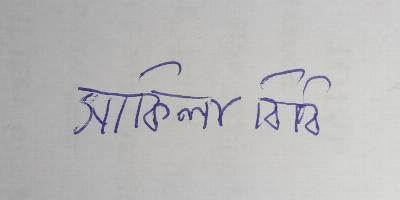 সাকিলা বিবি